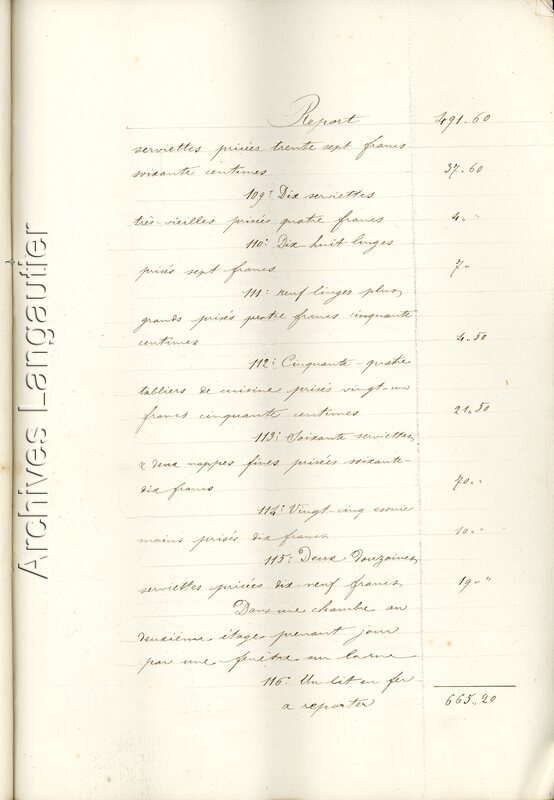 Report 491-60
serviettes prisées trente sept francs
soixante centimes 37.60
109° Dix serviettes
très-vieilles prisées quatre francs 4 „ "
110° Dix-huit linges
prisés sept francs 7 „
111° neuf linges plus
grands prisés quatre francs cinquante
centimes 4.50
112° Cinquante-quatre
tabliers de cuisine prisés vingt-un
francs cinquante centimes 21.50
113° Soixante serviettes
& deux nappes fines prisées soixante-
dix francs 70 „ "
114° Vingt-cinq essuie
mains prisés dix francs 10 „ "
115° Deux Douzaines
serviettes prisées dix-neuf francs 19 „ "
Dans une chambre au
deuxième étage prenant jour
par une fenêtre sur la rue
116° Un lit en fer
a reporter 665.20
Archives Langautier